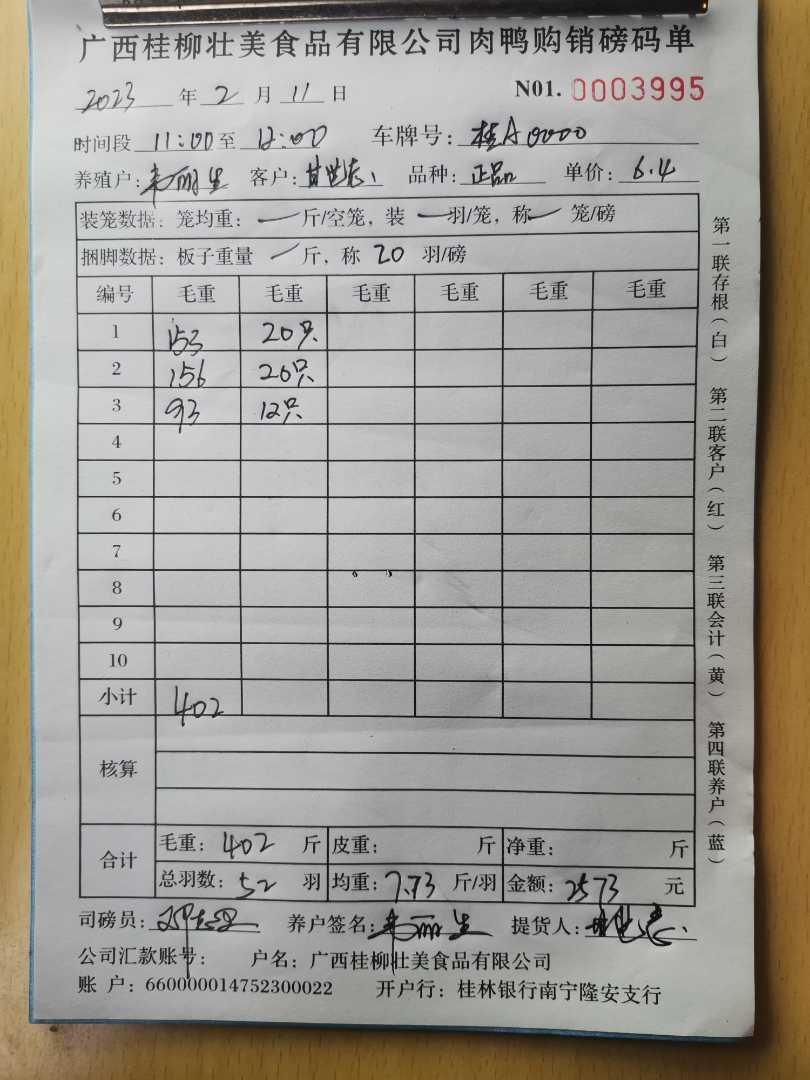 广西桂柳壮美食品有限公司肉鸭购销磅码单
2023年2月11日 N01.0003995
时间段 11:00至 12:00 车牌号：桂A0000
养殖户： 丽生 客户：甘世志 品种：正品 单价：6.4
装笼数据：笼均重：一斤/空笼，装一羽/笼，称一笼/磅
捆脚数据：板子重量一斤，称20羽/磅
编号 毛重 毛重 毛重 毛重 毛重 毛重
1 153 20只
2 156 20只
3 93 12只
4
5
6
7
8
9
10
小计 402
核算
合计 毛重：402斤 皮重： 斤 净重： 斤
总羽数：52羽 均重：7.73斤/羽 金额：2573元
司磅员： 养户签名： 丽生 提货人：
公司汇款账号： 户名：广西桂柳壮美食品有限公司
账 户：660000014752300022 开户行：桂林银行南宁隆安支行
第一联存根（白） 第二联客户（红） 第三联会计（黄） 第四联养户（蓝）